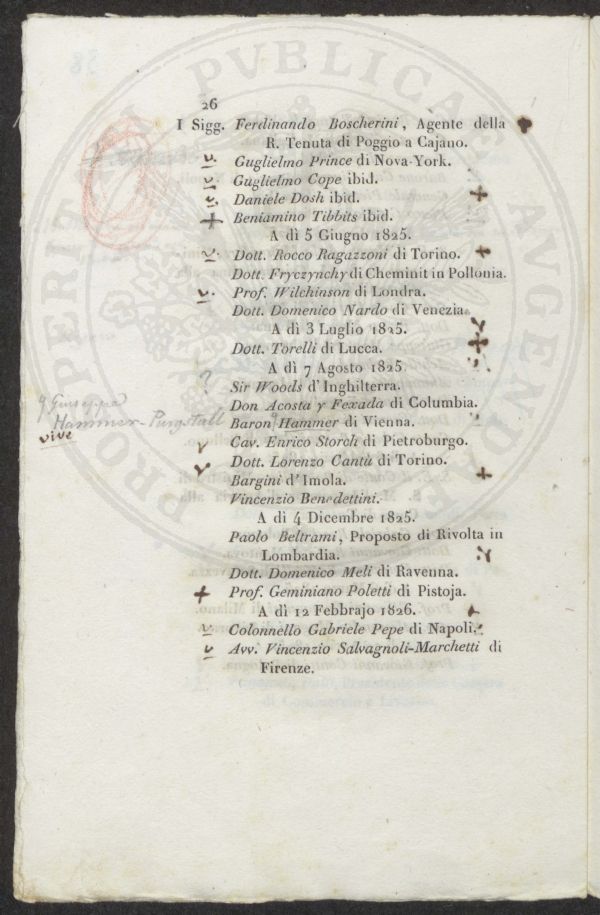 26
I Sigg. Ferdinando Boscherini, Agente della
R. Tenuta di Poggio a Cajano.
Guglielmo Prince di Nova-York.
Guglielmo Cope ibid.
Daniele Dosh ibid.
Beniamino Tibbits ibid.
A dì 5 Giugno 1825.
Dott. Rocco Ragazzoni di Torino.
Dott. Fryczynchy di Cheminit in Pollonia.
Prof. Wilchinson di Londra.
Dott. Domenico Nardo di Venezia.
A dì 3 Luglio 1825.
Dott. Torelli di Lucca.
A dì 7 Agosto 1825.
?
Sir Woods d'Inghilterra.
Don Acosta y Fexada di Columbia.
Giuseppe
Hammer-Purgstall
Baron Hammer di Vienna.
vive
Cav. Enrico Storch di Pietroburgo.
Dott. Lorenzo Cantù di Torino.
Bargini d'Imola.
Vincenzio Benedettini.
A dì 4 Dicembre 1825.
Paolo Beltrami, Proposto di Rivolta in
Lombardia.
Dott. Domenico Meli di Ravenna.
Prof. Geminiano Poletti di Pistoja.
A dì 12 Febbrajo 1826.
Colonnello Gabriele Pepe di Napoli.
Avv. Vincenzio Salvagnoli-Marchetti di
Firenze.
PROSPERITATI PVBLICAE AVGENDAE